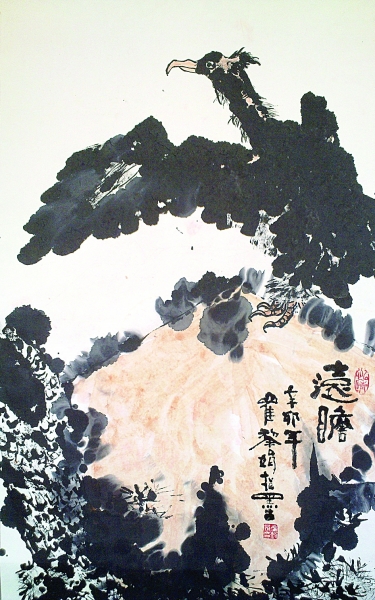 遠瞻
辛卯年
崔黎指墨